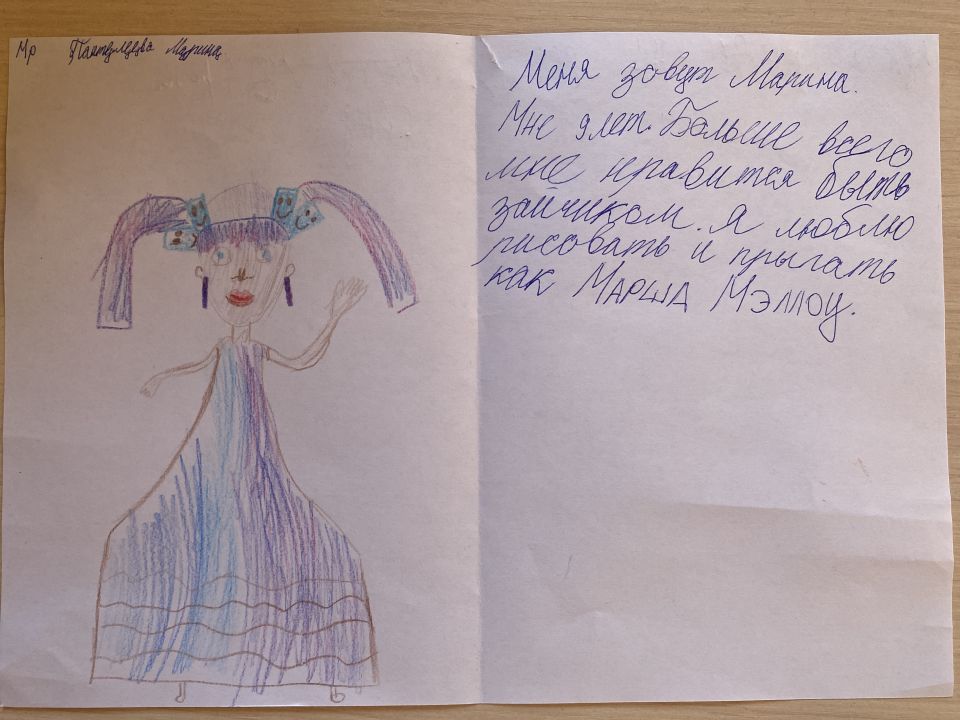 Мр Пантелеева Марина
Меня зовут Марина.
Мне 9 лет. Больше всего
мне нравится быть
зайчиком. Я люблю
рисовать и прыгать
как Марша Мэллоу.